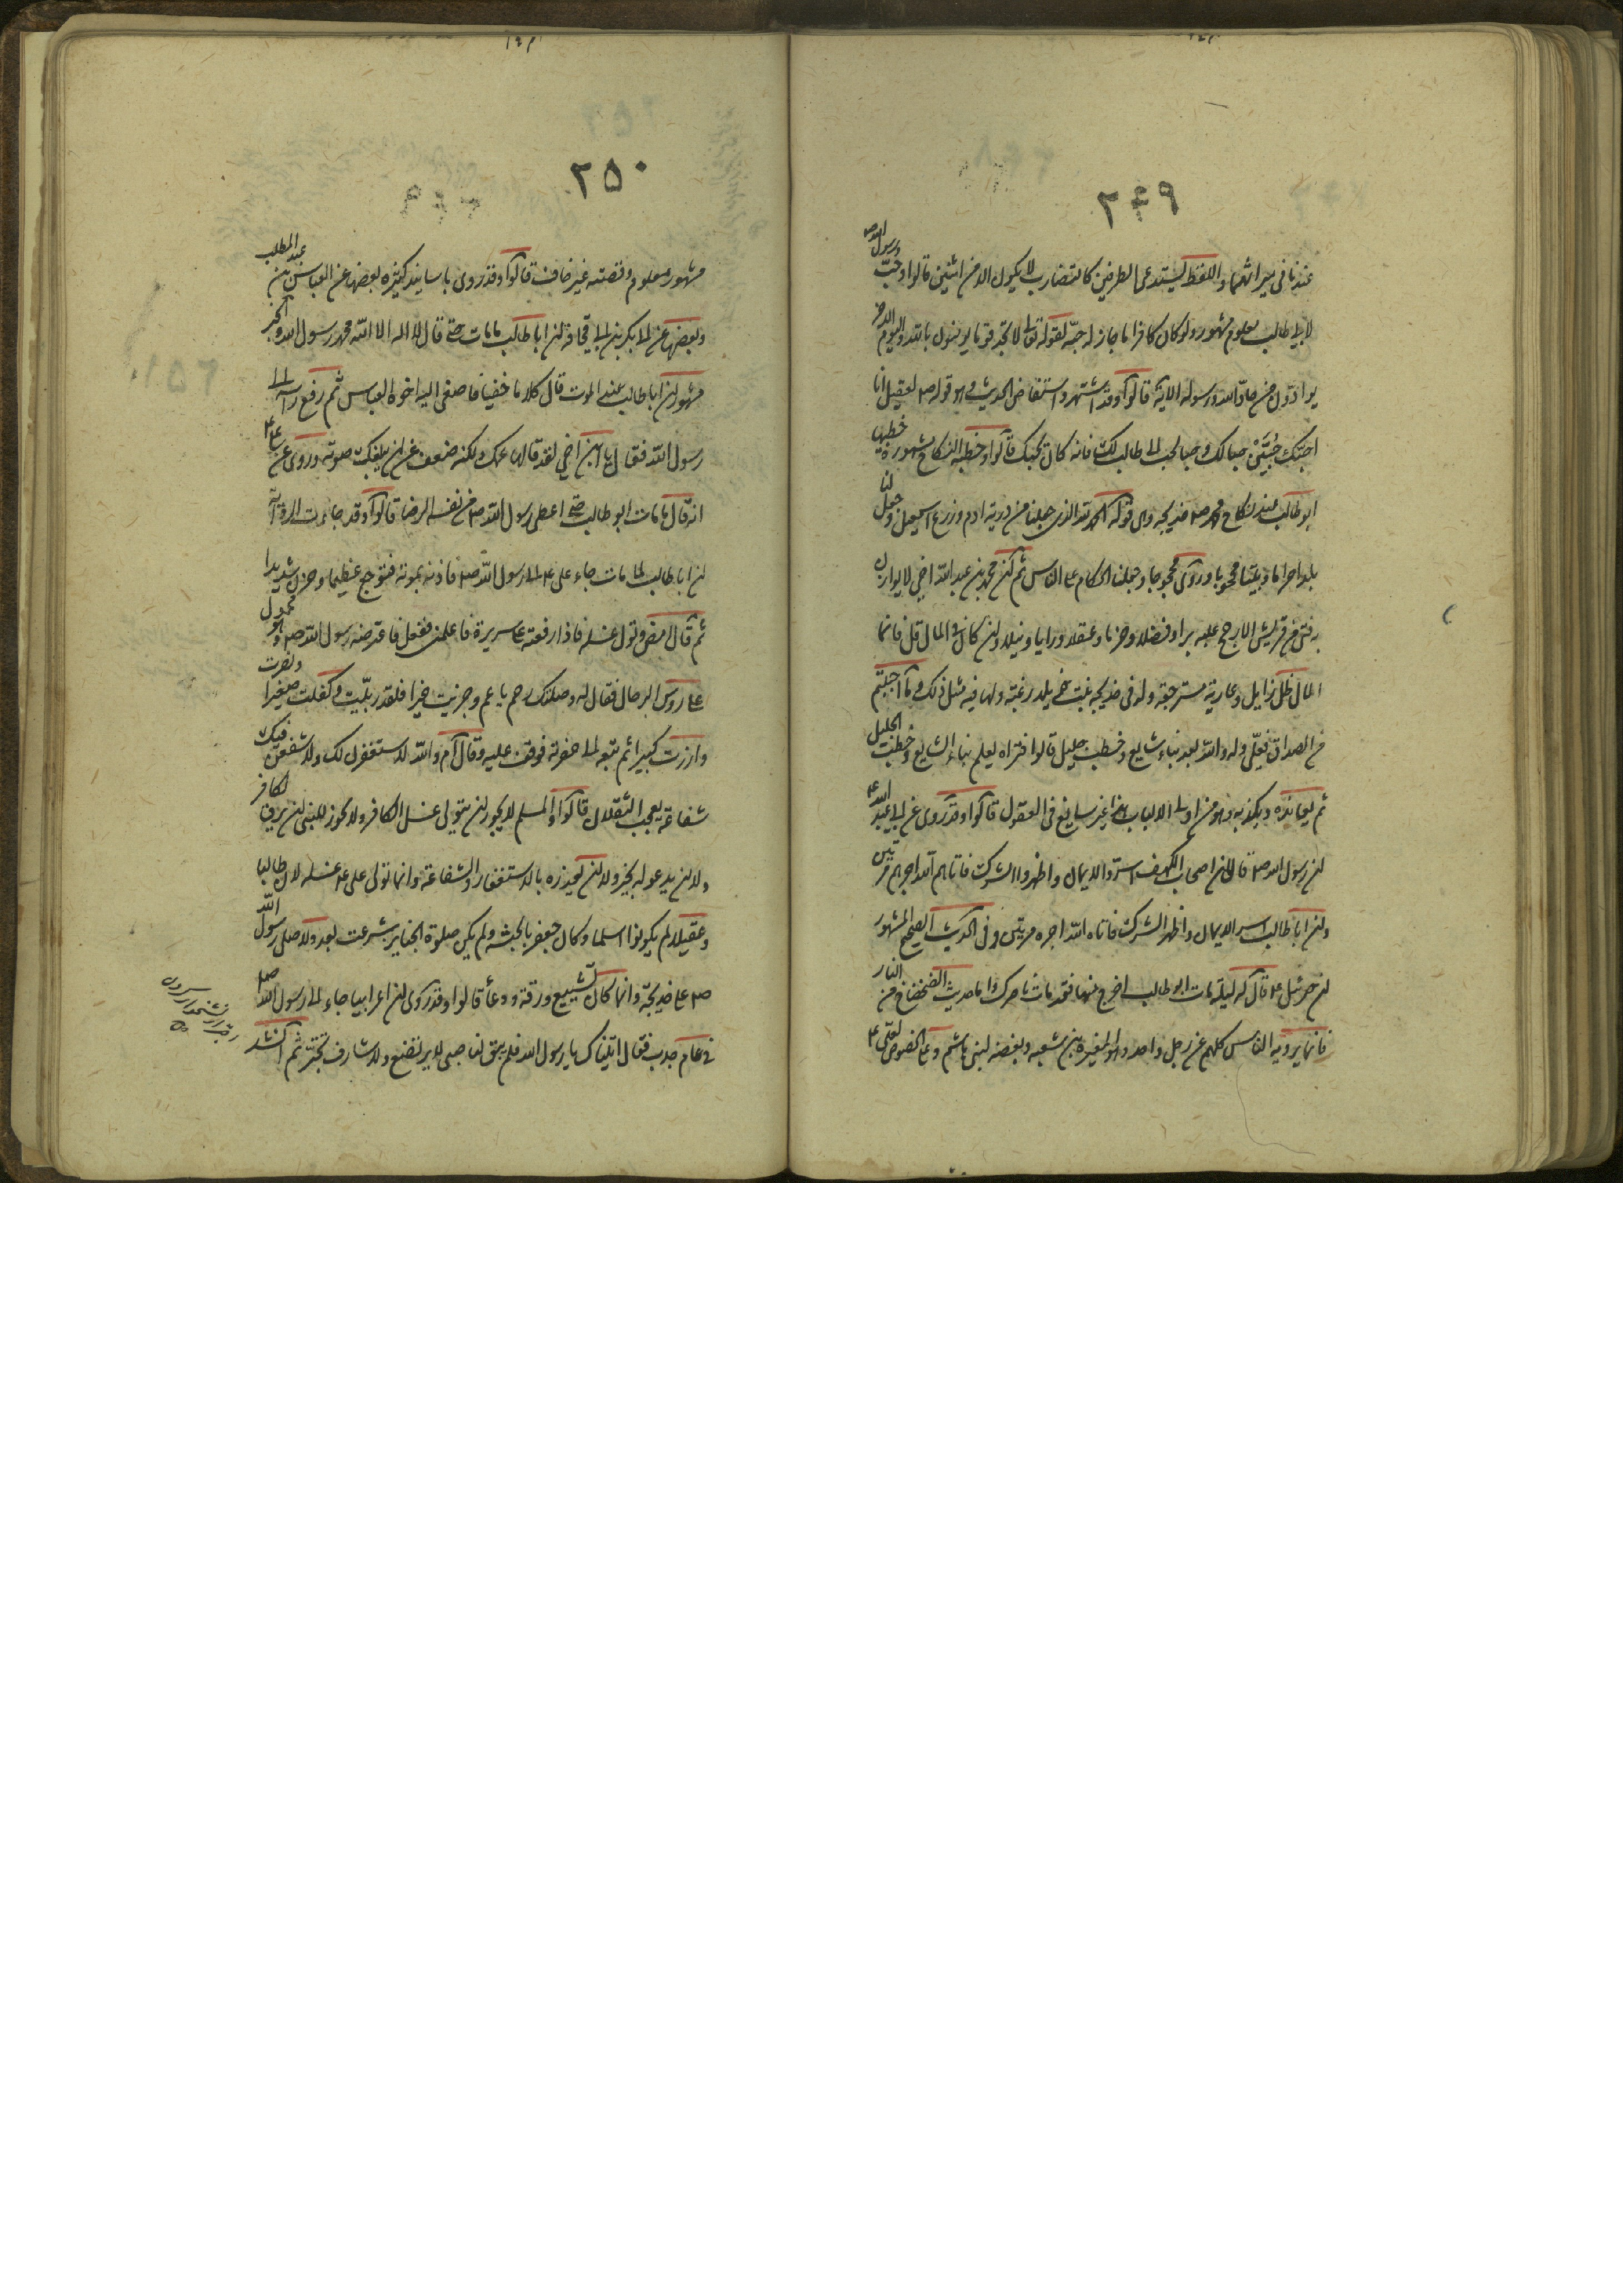 ٢٤٩
عندنا فى ميراثهما واللفظ يستدعى الطرفين كالتضارب لا يكون الا من اثنين قالوا وحبّ رسول الله ص
لابى طالب معلوم مشهور ولو كان كافرا ما جاز له حبّه لقوله تعالى لا تجد قوما يؤمنون بالله واليوم الاخر
يوادّون من حادّ الله ورسوله الاية قالوا وقد اشتهر واستفاض الحديث وهو قوله ص لعقيل انا
احبّك حبّين حبا لك وحبا لحب ابى طالب لك فانه كان يحبك قالوا وخطبة النكاح مشهورة خطبها
ابو طالب عند نكاح محمد ص خديجة وهى قوله الحمد لله الذى جعلنا من ذرية ادم وزرع اسمعيل وجعل لنا
بلدا حراما وبيتا محجوبا وروى محجوجا وجعلنا الحكام على الناس ثم ان محمد بن عبد الله اخى لا يوازن
به فتى من قريش الا رجح عليه برا وفضلا وحزما وعقلا ورايا ونبلا وان كان فى المال قل فانما
المال ظل زايل وعارية مسترجعة وله فى خديجة بنت خويلد رغبة ولها فيه مثل ذلك وما احببتم
من الصداق فعلىّ وله والله بعد نباء شايع وخطب جليل قالوا فتراه يعلم نباءه الشايع وخطبه الجليل
ثم يعانده ويكذبه وهو من اولى الالباب هذا غير سايغ فى العقول قالوا وقد روى عن ابى عبد الله ع
ان رسول الله ص قال ان اصحاب الكهف اسروا الايمان واظهروا الشرك فاتاهم الله اجرهم مرتين
وان ابا طالب اسر الايمان واظهر الشرك فاتاه الله اجره مرتين وفى الحديث الصحيح المشهور
ان جبرئيل ع قال له ليلة مات ابو طالب اخرج منها فقد مات ناصرك واما حديث الضحضاح من النار
فانما يرويه الناس كلهم عن رجل واحد وهو المغيرة بن شعبه وبغضه لبنى هاشم وعلى الخصوص لعلى ع
٢٥٠
مشهور معلوم وقصته غير خاف قالوا وقد روى باسانيد كثيرة بعضها عن العباس بن عبد المطلب
وبعضها عن ابى بكر بن ابى قحافه ان ابا طالب ما مات حتى قال لا اله الا الله محمد رسول الله والخبر
مشهور ان ابا طالب عند الموت قال كلاما خفيا فاصغى اليه اخوه العباس ثم رفع راسه الى
رسول الله فقال يا ابن اخى لقد قالها عمك ولكنه ضعف عن ان يبلغك صوته وروى عن على ع
انه قال ما مات ابو طالب حتى اعطى رسول الله ص من نفسه الرضا قالوا وقد جاءت الرواية
ان ابا طالب لما مات جاء على ع الى رسول الله ص فاذنه بموته فتوجع عظيما وحزن شديدا
ثم قال امض وتول غسله فاذا رفعته على سريره فاعلمنى ففعل فاعترضه رسول الله ص وهو محمول
على روس الرجال فقال له وصلتك رحم يا عم وجزيت خيرا فلقد ربّيت وكفلت صغيرا ونصرت
وازرت كبيرا ثم تبعه الى حفرته فوقف عليه وقال ام والله لاستغفرن لك ولاشفعن فيك
شفاعة يعجب الثقلان قالوا والمسلم لا يجوز ان يتولى غسل الكافر ولا يجوز للنبى ان يرق لكافر
ولا ان يدعو له بخير ولا ان يعده بالاستغفار والشفاعة وانما تولى على ع غسله لان طالبا
وعقيلا لم يكونا اسلما وكان جعفر بالحبشة ولم يكن صلوة الجنايز شرعت بعد ولا صلى رسول الله
ص على خديجة وانما كان تشييع ورقة ودعأ قالوا وقد روى ان اعرابيا جاء الى رسول الله ص
فى عام جدب فقال اتيناك يا رسول الله ولم يبق لنا صبى يرتضع ولا شارف يجتر ثم انشد